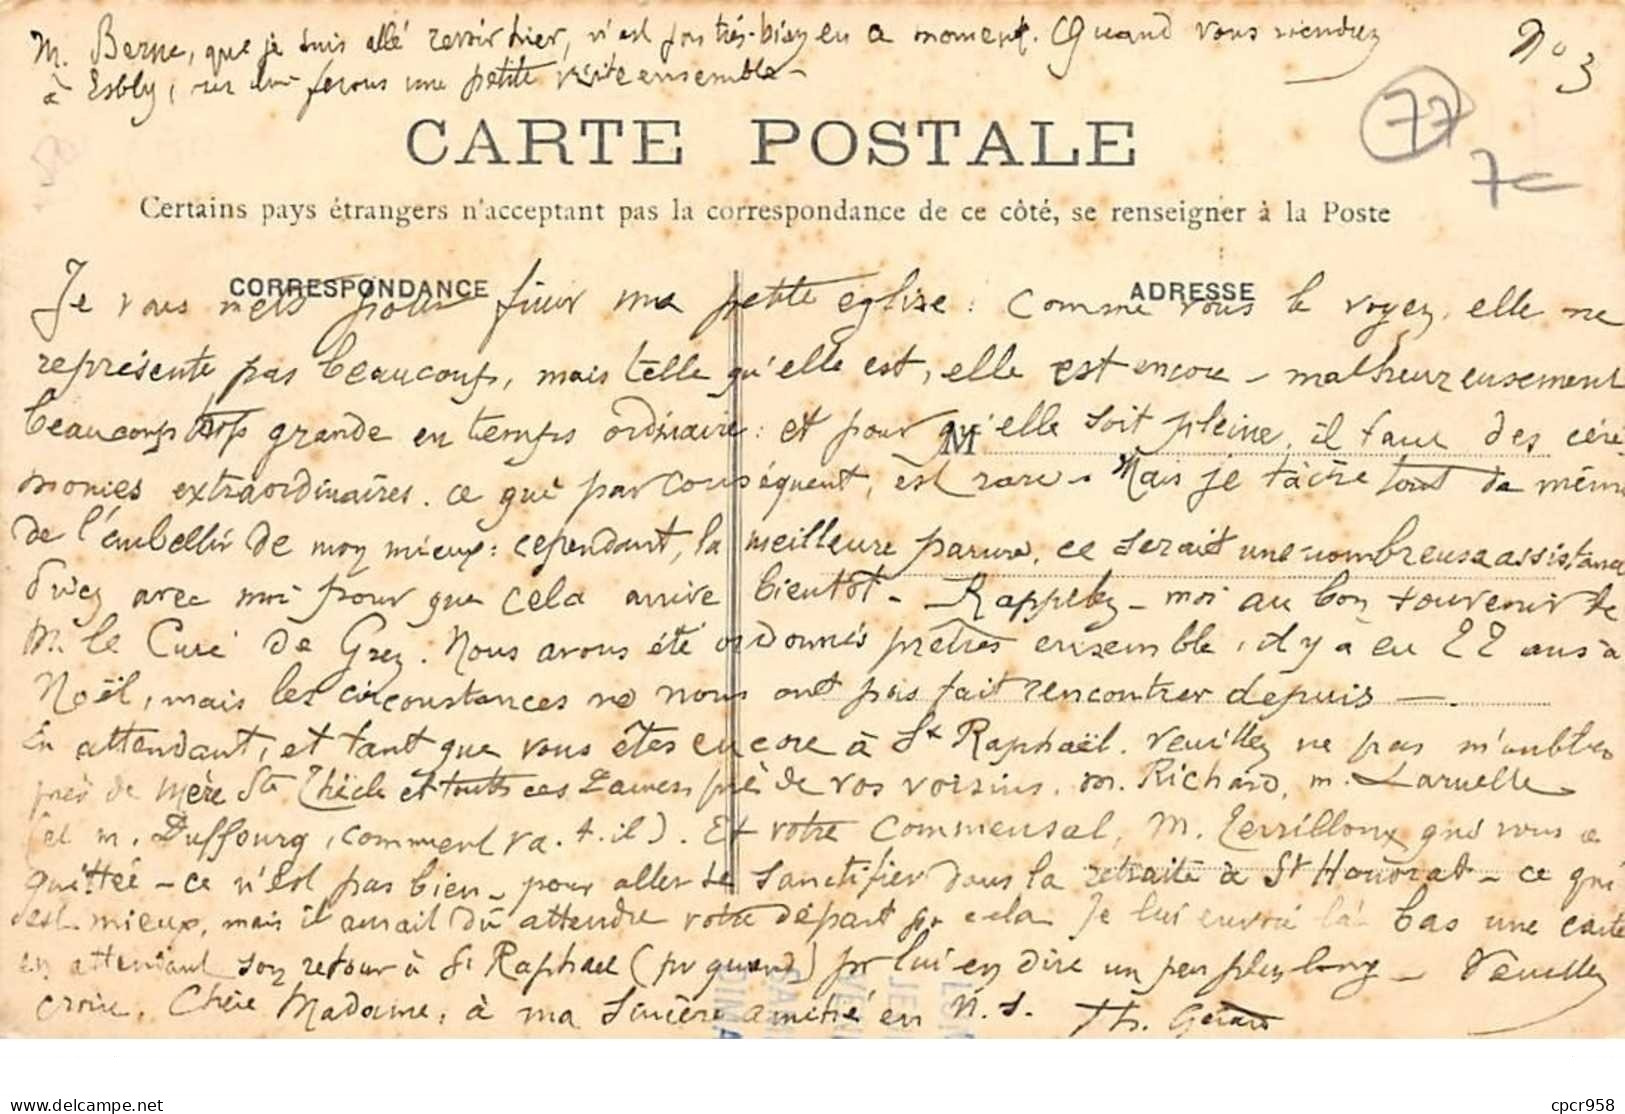 M. Berne, que je suis allé revoir hier, n'est pas très-bien en ce moment. Quand vous viendrez
No 3
à Esbly, nous lui ferons une petite visite ensemble -
77
7
CARTE POSTALE
Certains pays étrangers n'acceptant pas la correspondance de ce côté, se renseigner à la Poste
CORRESPONDANCE
ADRESSE
M
Je vous mets pour finir ma petite église : Comme vous le voyez, elle ne
représente pas beaucoup, mais telle qu'elle est, elle est encore - malheureusement
beaucoup trop grande en temps ordinaire : et pour qu'elle soit pleine, il faut des céré
monies extraordinaires. ce qui par conséquent, est rare - Mais je tâche tout de même
de l'embellir de mon mieux : cependant, la meilleure parure, ce serait une nombreuse assistance
Priez avec moi pour que cela arrive bientôt - Rappelez-moi au bon souvenir de
M. le Curé de Grez. Nous avons été ordonnés prêtres ensemble, il y a eu 22 ans à
Noël, mais les circonstances ne nous ont pas fait rencontrer depuis -
En attendant, et tant que vous êtes encore à St Raphaël. Veuillez ne pas m'oublier
près de Mère Ste Thècle et toutes ces Dames, près de vos voisins. M. Richard, M. Laruelle
(et M. Duffourg, comment va-t-il). Et votre commensal, M. Terrilloux qui vous a
quittée - ce n'est pas bien - pour aller se sanctifier dans la retraite à St Honorat - ce qui
est mieux, mais il aurait dû attendre votre départ pr cela. Je lui envoie là bas une carte
en attendant son retour à St Raphael (pr quand) pr lui en dire un peu plus long - Veuillez
croire, Chère Madame, à ma sincère amitié en N. S. Th. Gérard
delcampe.net
cpcr958